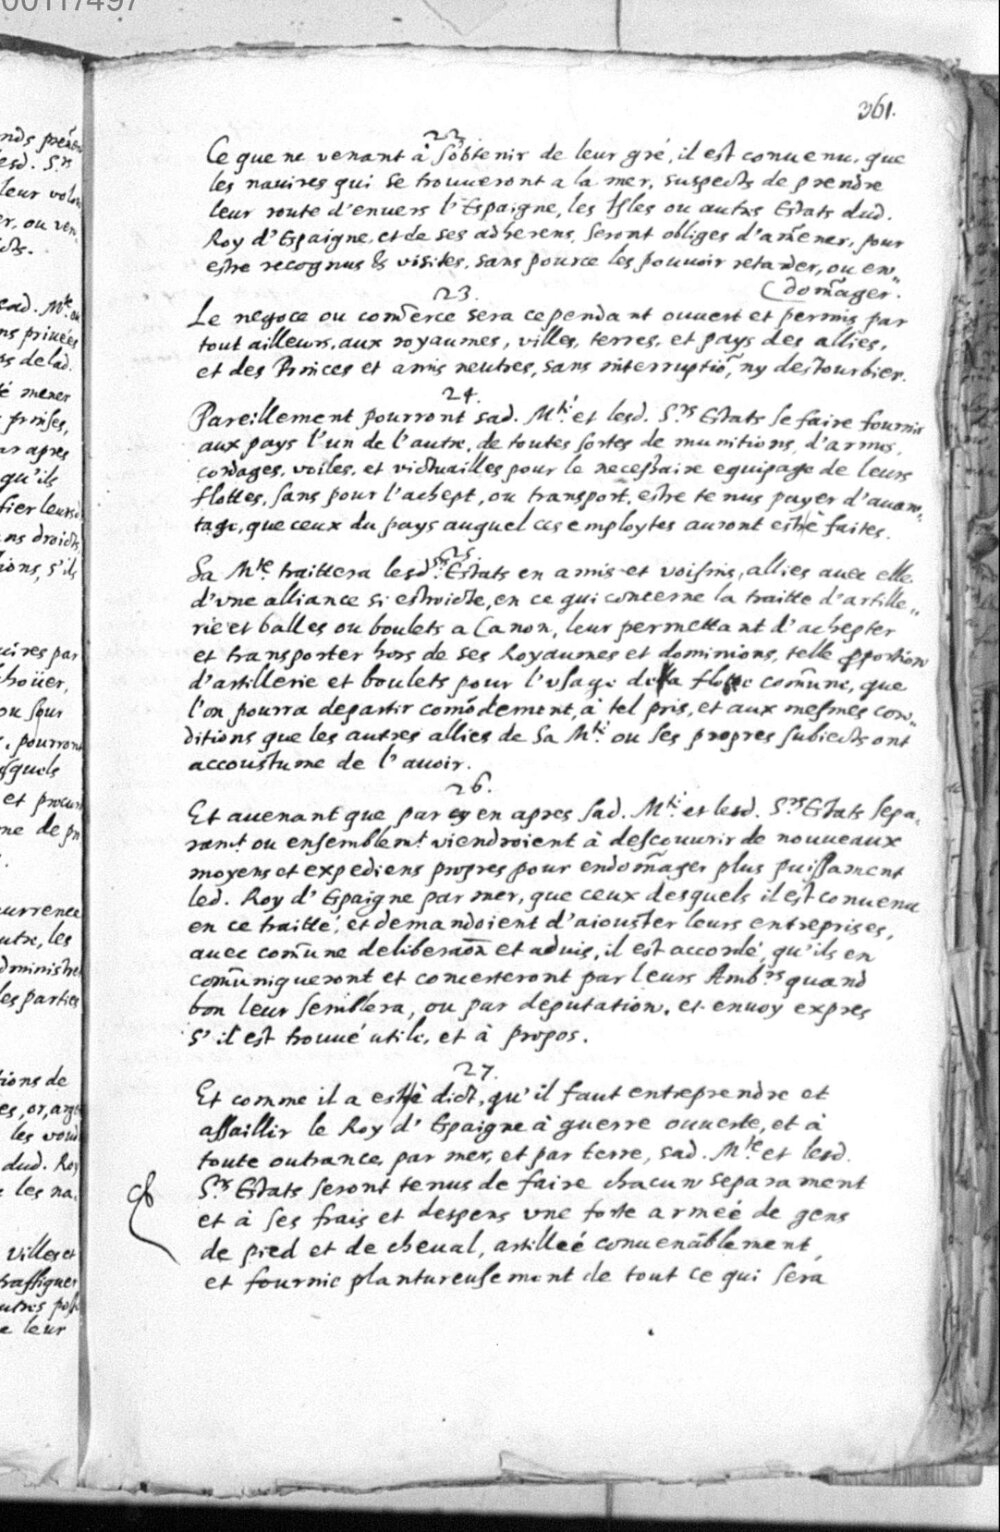 00117497
361.
22
Ce que ne venant à s'obtenir de leur gré, il est convenu, que
les navires qui se trouveront a la mer, suspects de prendre
leur route d'envers l'Espaigne, les Isles ou autres Estats dud.
Roy d'Espaigne, et de ses adherens, seront obliges d'amener, pour
estre recognus & visites, sans pource les pouvoir retarder, ou en„
(domager.
23.
Le negoce ou comerce sera cependant ouvert et permis par
tout ailleurs, aux royaumes, villes, terres, et pays des allies,
et des Princes et amis neutres, sans interruptiõ, ny destourbier.
24.
Pareillement pourront sad. Mté. et lesd. Srs Estats se faire fournir
aux pays l'un de l'autre, de toutes sortes de munitions, d'armes,
cordages, voiles, et victuailles pour le necessaire equipage de leurs
flottes, sans pour l'achept, ou transport, estre tenus payer d'avan„
tage, que ceux du pays auquel ces employtes auront esté faites.
25.
Sa Mté. traittera lesd. Srs Estats en amis et voisins, allies avec elle
d'une alliance si estroicte, en ce qui concerne la traitte d'artille„
rie et balles ou boulets a Canon, leur permettant d'achepter
et transporter hors de ses Royaumes et dominions, telle proportion
d'artillerie et boulets pour l'usage de la flotte comune, que
l'on pourra departir comodement, à tel pris, et aux mesmes con„
ditions que les autres allies de Sa Mté. ou ses propres subiects ont
accoustumé de l'avoir.
26.
Et avenant que par cy en apres sad. Mté. et lesd. Srs Estats sepa„
ramt. ou ensemblemt. viendroient à descouvrir de nouveaux
moyens et expediens propres pour endomager plus puissament
led. Roy d'Espaigne par mer, que ceux desquels il est convenu
en ce traitté, et demandoient d'aiouster leurs entreprises,
avec comune deliberaõn et advis, il est accordé, qu'ils en
comuniqueront et concerteront par leurs Ambrs quand
bon leur semblera, ou par deputation, et envoy expres
s'il est trouvé utile, et à propos.
27.
Et comme il a esté dict, qu'il faut entreprendre et
assaillir le Roy d'Espaigne à guerre ouverte, et à
toute outrance, par mer, et par terre, sad. Mté. et lesd.
Srs Estats seront tenus de faire chacun separament
et à ses frais et despens une forte armeé de gens
de pied et de cheval, artilleé convenablement,
et fournie plantureusement de tout ce qui sera